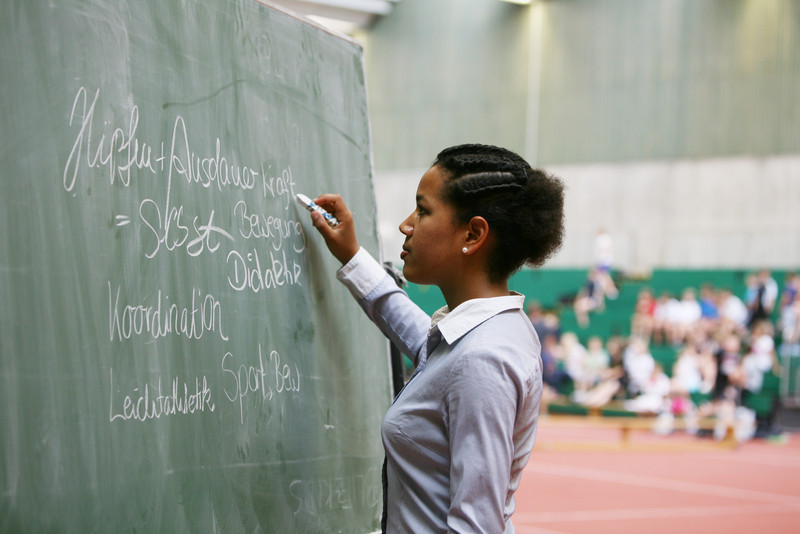 Hüpfen + Ausdauer kraft
= selbst Bewegung
Didaktik
Koordination
Leichtathletik Sport, Bew